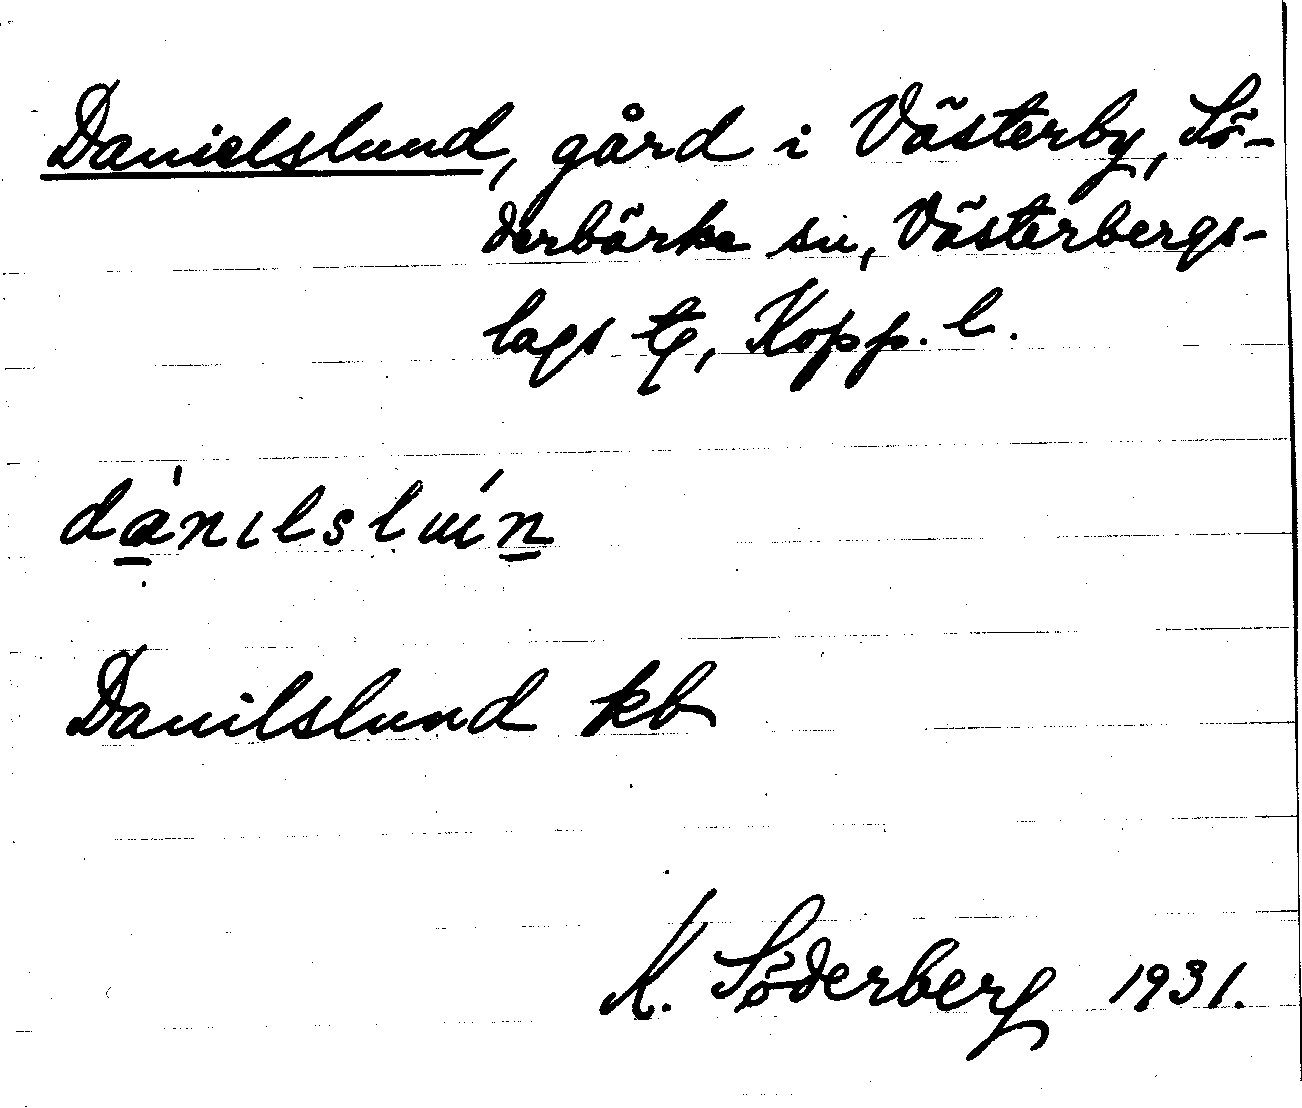 Danielslund, gård i Västerby, Sö-
derbärke sn, Västerbergs-
lags tg, Kopp. l.
dànilsluín
Danilslund kb
K. Söderberg 1931.